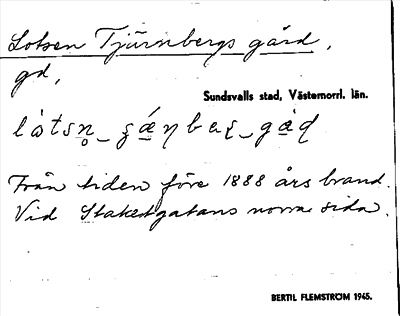 Lotsen Tjärnbergs gård,
gd,
Sundsvalls stad, Västernorrl. län.
Från tiden före 1888 års brand.
Vid Staketgatans norra sida.
BERTIL FLEMSTRÖM 1945.